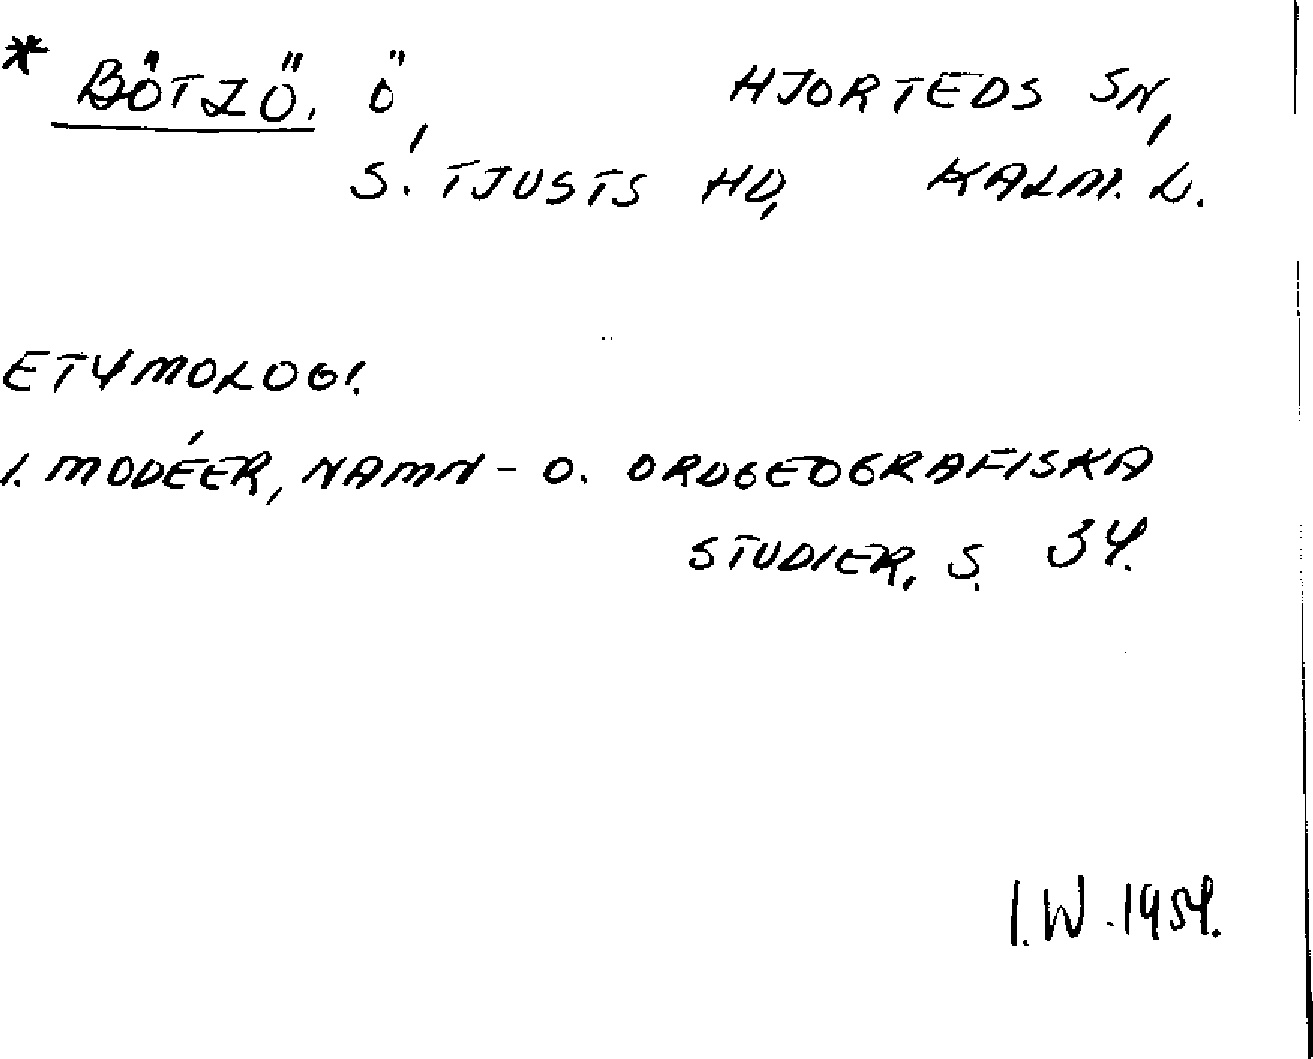 * BÖTZÖ. Ö, HJORTEDS SN,
S. TJUSTS HD, KALM. L.
ETYMOLOGI.
I. MODÉER, NAMN- O. ORDGEOGRAFISKA
STUDIER, S. 34.
I.W. 1954.